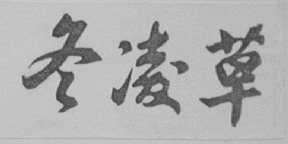 冬凌草